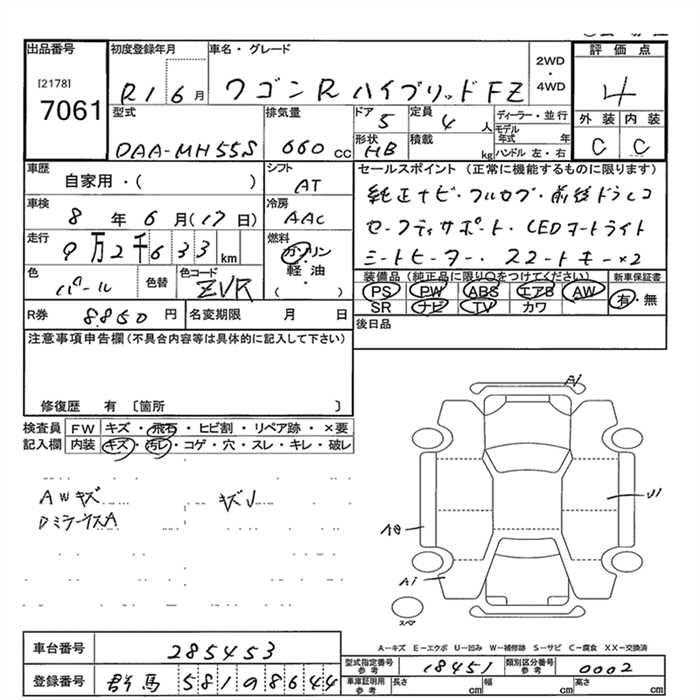 出品番号
[2178]
7061
初度登録年月
R1 6月
車名・グレード
ワゴンR ハイブリッドFZ
2WD
・
4WD
評価点
4
外装 内装
C C
型式
DAA-MH55S
排気量
660 cc
ドア
5
形状
HB
定員
4 人
積載
kg
ディーラー・並行
モデル年式 年
ハンドル 左・右
車歴
自家用・( )
シフト
AT
車検
8年 6月(17日)
冷房
AAC
走行
9万2千633km
燃料
ガソリン
・
軽油
( )
色
パール
色替
色コード
ZVR
セールスポイント (正常に機能するものに限ります)
純正ナビ・フルカブ・前後ドラレコ
セーフティサポート・LEDオートライト
シートヒーター・スマートキー×2
装備品(純正品に限り○をつけてください)
PS PW ABS エアB AW
SR ナビ TV カワ
新車保証書
有・無
R券 8850円
名変期限 月 日
後日品
注意事項申告欄(不具合内容等は具体的に記入して下さい)
修復歴 有 〔箇所 〕
検査員
記入欄
FW キズ・飛石・ヒビ割・リペア跡・×要
内装 キズ・汚レ・コゲ・穴・スレ・キレ・破レ
AWキズ キズ
DミラーウスA
A1
U1
A1
スペア
A-キズ E-エクボ U-凹み W-補修跡 S-サビ C-腐食 XX-交換済
車台番号 285453
登録番号 群馬 581 8644
型式指定番号 参考 18451
類別区分番号 参考 0002
車庫証明用 参考 長さ cm 幅 cm 高さ cm